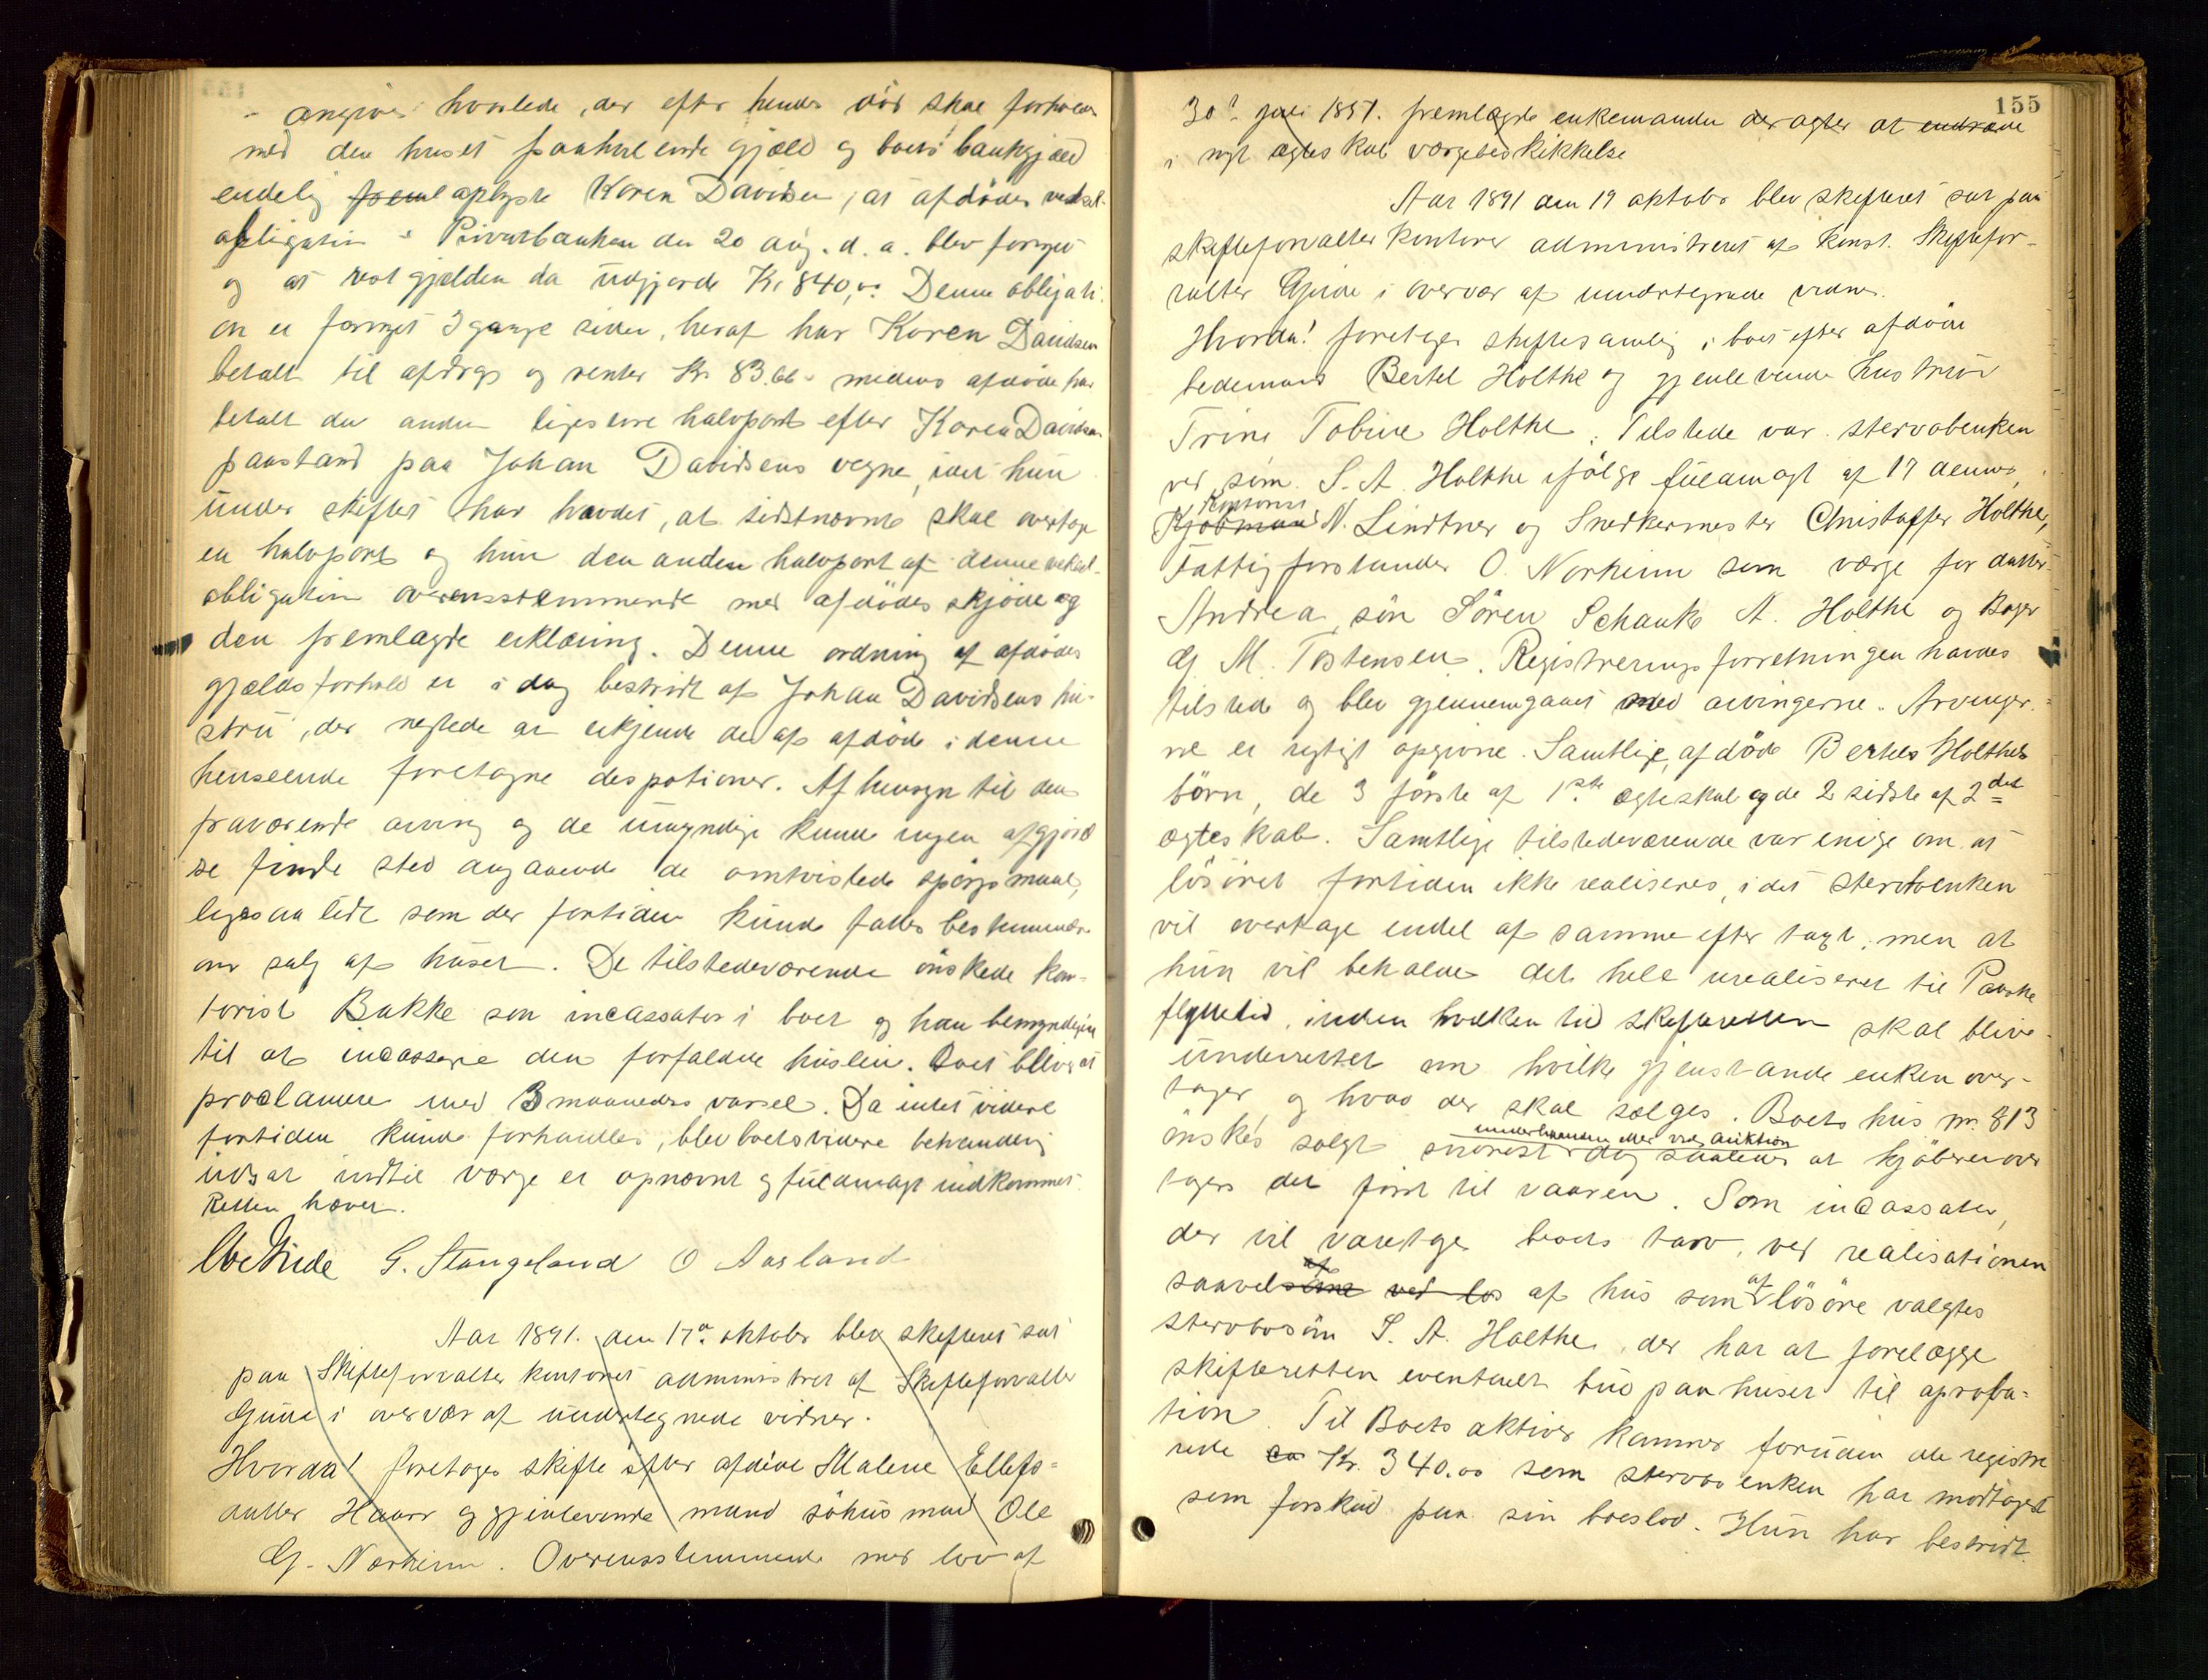 angives hvorlede, der efter hendes död skal forholdes
med den huset paahvilende gjæld og boets bankgjæld
endelig freml oplyste Karen Davidsen, at afdödes vedsel-
obligation i Privatbanken den 20 aug. d. a. blev fornyet
og at restgjælden da udgjorde Kr 840,00 Denne obligati-
on er fornyet 3 gange siden, heraf har Karen Davidsen
betalt til afdrag og renter Kr. 83.66 medens afdöde har
betalt den anden ligestore halvpart efter Karen Davidsens
paastand paa Johan Davidsens vegne, idet hun
under skiftet har hævdet, at sidstnævnte skal overtage
en halvpart og hun den anden halvpart af denne veksel-
obligation overensstemmende med afdödes skjöde og
den fremlagte erklæring. Denne ordning af afdödes
gjældsforhold er i dag bestridt af Johan Davidsens hu-
stru, der negtede at erkjende de af afdöde i denne
henseende foretagne despotioner. Af hensyn til den
fraværende arving og de umyndige kunde ingen afgjörel
se finde sted angaaende de omtvistede spörgsmaal,
ligesaa lidt som der fortiden kunde fattes bestemmelse
om salg af huset. De tilstedeværende önskede kon-
torist Bakke som incassator i boet og han bemyndiges
til at incassere den forfaldne husleie. Boet bliver at
proclamere med 3 maaneders varsel. Da intet videre
fortiden kunde forhandles, blev boets videre behandling
udsat indtil værge er opnævnt og fuldmagt indkommet.
Retten hævet.
G. Stangeland O Aasland
Aar 1891. den 17de oktober blev skifteret sat
paa Skifteforvalter kontoret administret af Skifteforvalter
Gjude i overvær af undertegnede vidner.
Hvorda! foretoges skifte efter afdöde Malene Ellefs-
datter Haaer og gjenlevende mand söhusmand Ole
G. Norheim. Overensstemmende med lov af
155
30te juli 1851. fremlagde enkemanden der agter at endræde
i nyt ægteskab værgebeskikkelse
Aar 1891 den 19 oktober blev skifteret sat paa
skifteforvalter kontoret administreret af konst. Skiftefor-
valter Gjude i overvær af undertegnede vidner.
Hvorda! foretoges skiftesamling i boet efter afdöde
bedemand Bertel Holthe og gjenlevende hustru
Trine Tobine Holthe. Tilstede var stervboenken
ved sön S. A. Holthe ifölge fuldmagt af 17 dennes,
Kontorist
Kjöbmand N. Lindtner og Snedkermester Christoffer Holthe,
Fattigforstander O. Norheim som værge for datter
Andrea, sön Sören Schank A. Holthe og Bager
G. M. Tostensen. Registreringsforretningen havdes
tilstede og blev gjennemgaaet med arvingerne. Arvinger-
ne er rigtigt opgivne. Samtlige, afdöde Bertels Holthes
börn, de 3 förste af 1ste ægteskab og de 2 sidste af 2det
ægteskab. Samtlige tilstedeværende var enige om at
lösöret fortiden ikke realiseres, i det stervboenken
vil overtage endel af samme efter taxt, men at
hun vil beholde det hele urealiseret til Paaske
flyttetid, inden hvilken tid skifteretten skal blive
underrettet om hvilke gjenstande enken over-
tager, og hvad der skal sælges. Boets hus nr. 813
underhaanden eller ved auktion
önskes solgt snarest dog saaledes at kjöberen over
tager det först til vaaren. Som incassator,
der vil varetage boets tarv, ved realisationen
af
saavelsöme ved los af hus som af lösöre valgtes
stervbosön S. A. Holthe, der har at forelægge
skifteretten eventuelt bud paa huset til aproba-
tion. Til Boets aktiver kommer foruden de registre
rede ca Kr. 340.00 som stervboenken har modtaget
som forskud paa sin boeslod. Hun har bestridt